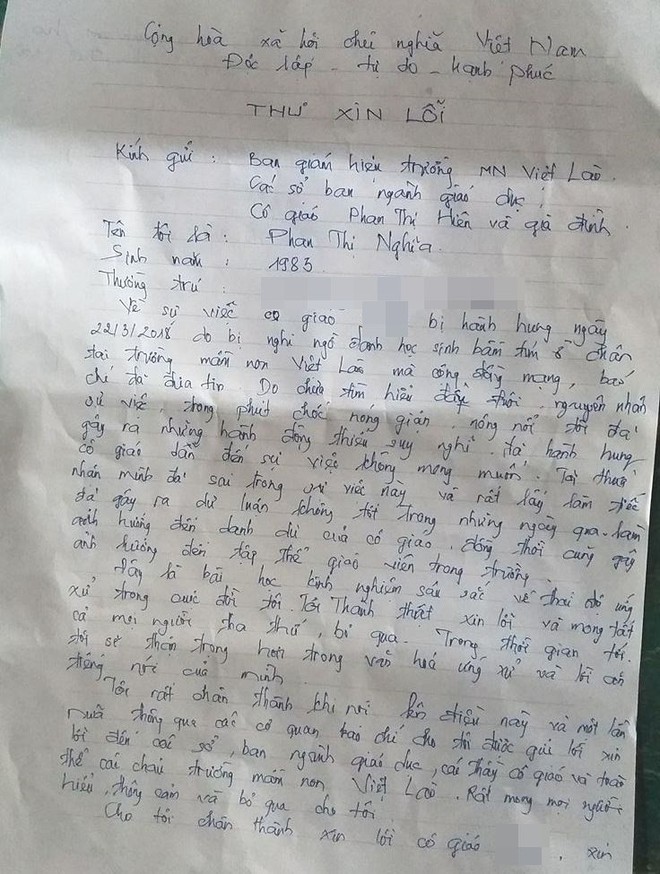 Cộng hoà xã hội chủ nghĩa Việt Nam
Độc lập - tự do - hạnh phúc
THƯ XIN LỖI
Kính gửi : Ban giám hiệu trường MN Việt Lào.
Các sở ban ngành giáo dục;
Cô giáo Phan Thị Hiền và gia đình.
Tên tôi là : Phan Thị Nghĩa.
Sinh năm : 1983
Thường trú :
Về sự việc cô giáo bị hành hung ngày
22/3/2018 do bị nghi ngờ đánh học sinh bầm tím ở chân
tại trường mầm non Việt Lào mà cộng đồng mạng, báo
chí đã đưa tin. Do chưa tìm hiểu nguyên nhân
sự việc, trong phút chốc nóng giận, nông nổi tôi đã
gây ra những hành động thiếu suy nghĩ, đã hành hung
cô giáo dẫn đến sự việc không mong muốn. Tôi thừa
nhận mình đã sai trong sự việc này và rất lấy làm tiếc
đã gây ra dư luận không tốt trong những ngày qua. Làm
ảnh hưởng đến danh dự của cô giáo, đồng thời cũng gây
ảnh hưởng đến tập thể giáo viên trong trường.
Đây là bài học kinh nghiệm sâu sắc về thái độ ứng
xử trong cuộc đời tôi. Tôi Thành thật xin lỗi và mong tất
cả mọi người tha thứ, bỏ qua. Trong thời gian tới.
tôi sẽ thận trọng hơn trong văn hoá ứng xử và lời ăn
tiếng nói của mình.
Tôi rất chân thành khi nói lên điều này và một lần
nữa thông qua các cơ quan báo chí cho tôi được gửi lời xin
lỗi đến các sở, ban ngành giáo dục, các thầy cô giáo và toàn
thể các cháu trường mầm non Việt Lào. Rất mong mọi người
hiểu, thông cảm và bỏ qua cho tôi.
Cho tôi chân thành xin lỗi cô giáo , xin